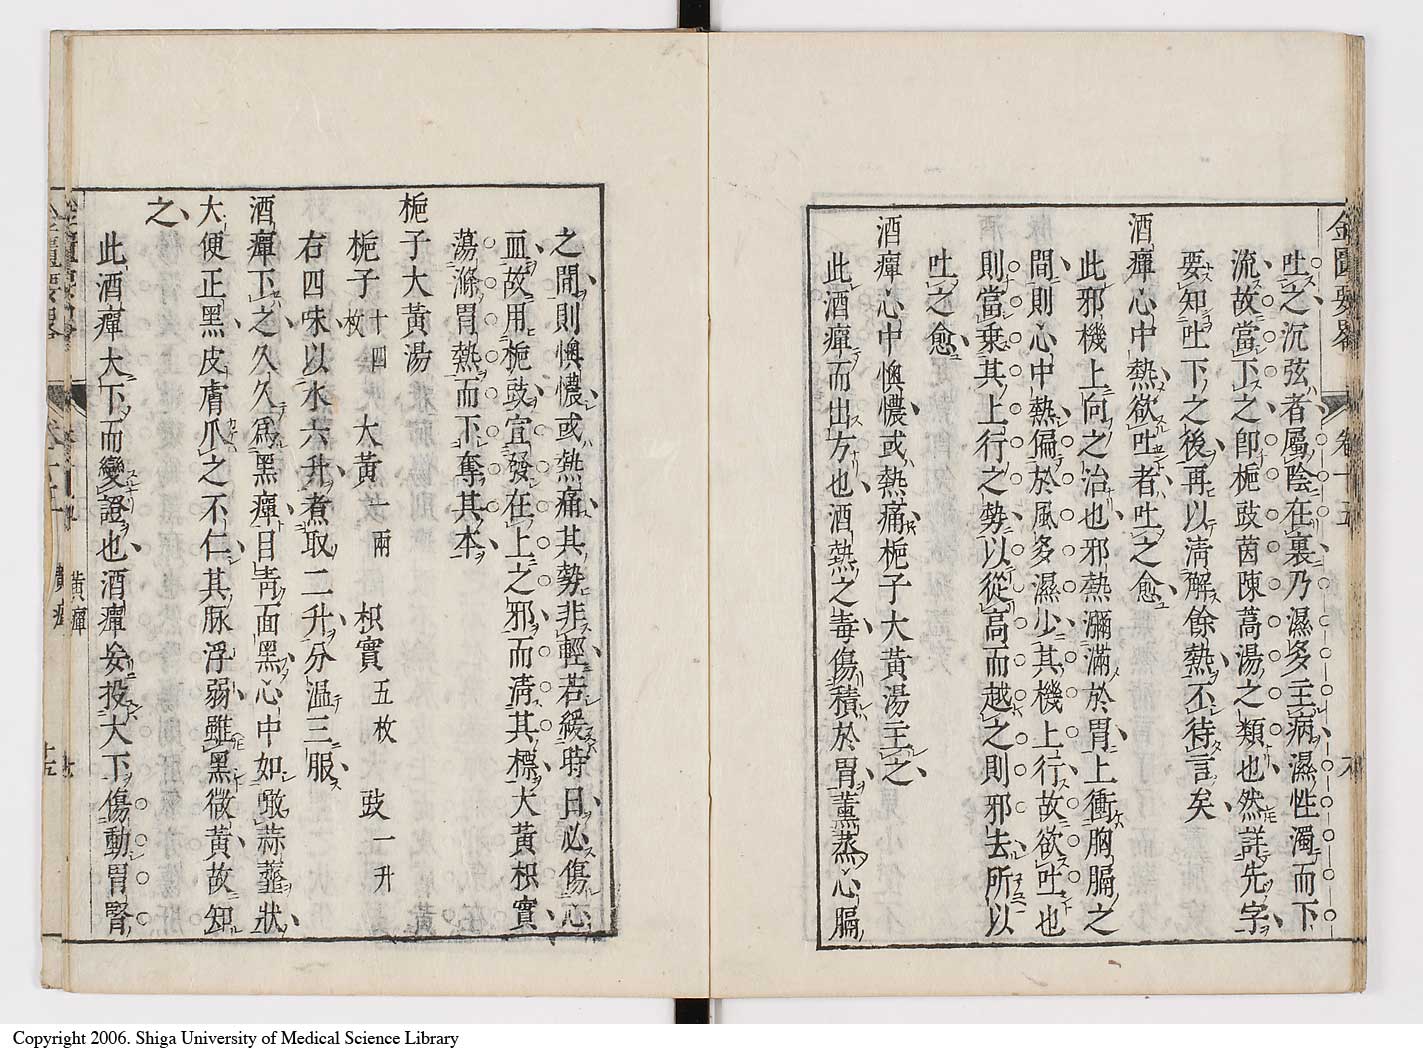 金匱要畧 卷十五 六
吐之沉弦者屬陰在裏乃濕多主病濕性濁而下
流故當下之卽梔豉茵陳蒿湯之類也然詳先字
要知吐下之後再以淸解餘熱不待言矣
酒癉心中熱欲吐者吐之愈
此邪機上向之治也邪熱瀰滿於胃上衝胸膈之
間則心中熱偏於風多濕少其機上行故欲吐也
則當乗其上行之勢以從高而越之則邪去所以
吐之愈
酒癉心中懊憹或熱痛梔子大黃湯主之
此酒癉而出方也酒熱之毒傷積於胃薰蒸心膈
之間則懊憹或熱痛其勢非輕若緩時日必傷心
血故用梔豉宜發在上之邪而淸其標大黃枳實
蕩滌胃熱而下奪其本
梔子大黃湯
梔子十四枚 大黃一兩 枳實五枚 豉一升
右四味以水六升煮取二升分温三服
酒癉下之久久爲黑癉目靑面黑心中如噉蒜虀狀
大便正黑皮膚爪之不仁其脉浮弱雖黑微黃故知
之
此酒癉大下而變證也酒癉妄投大下傷動胃腎
黃癉
Copyright 2006. Shiga University of Medical Science Library